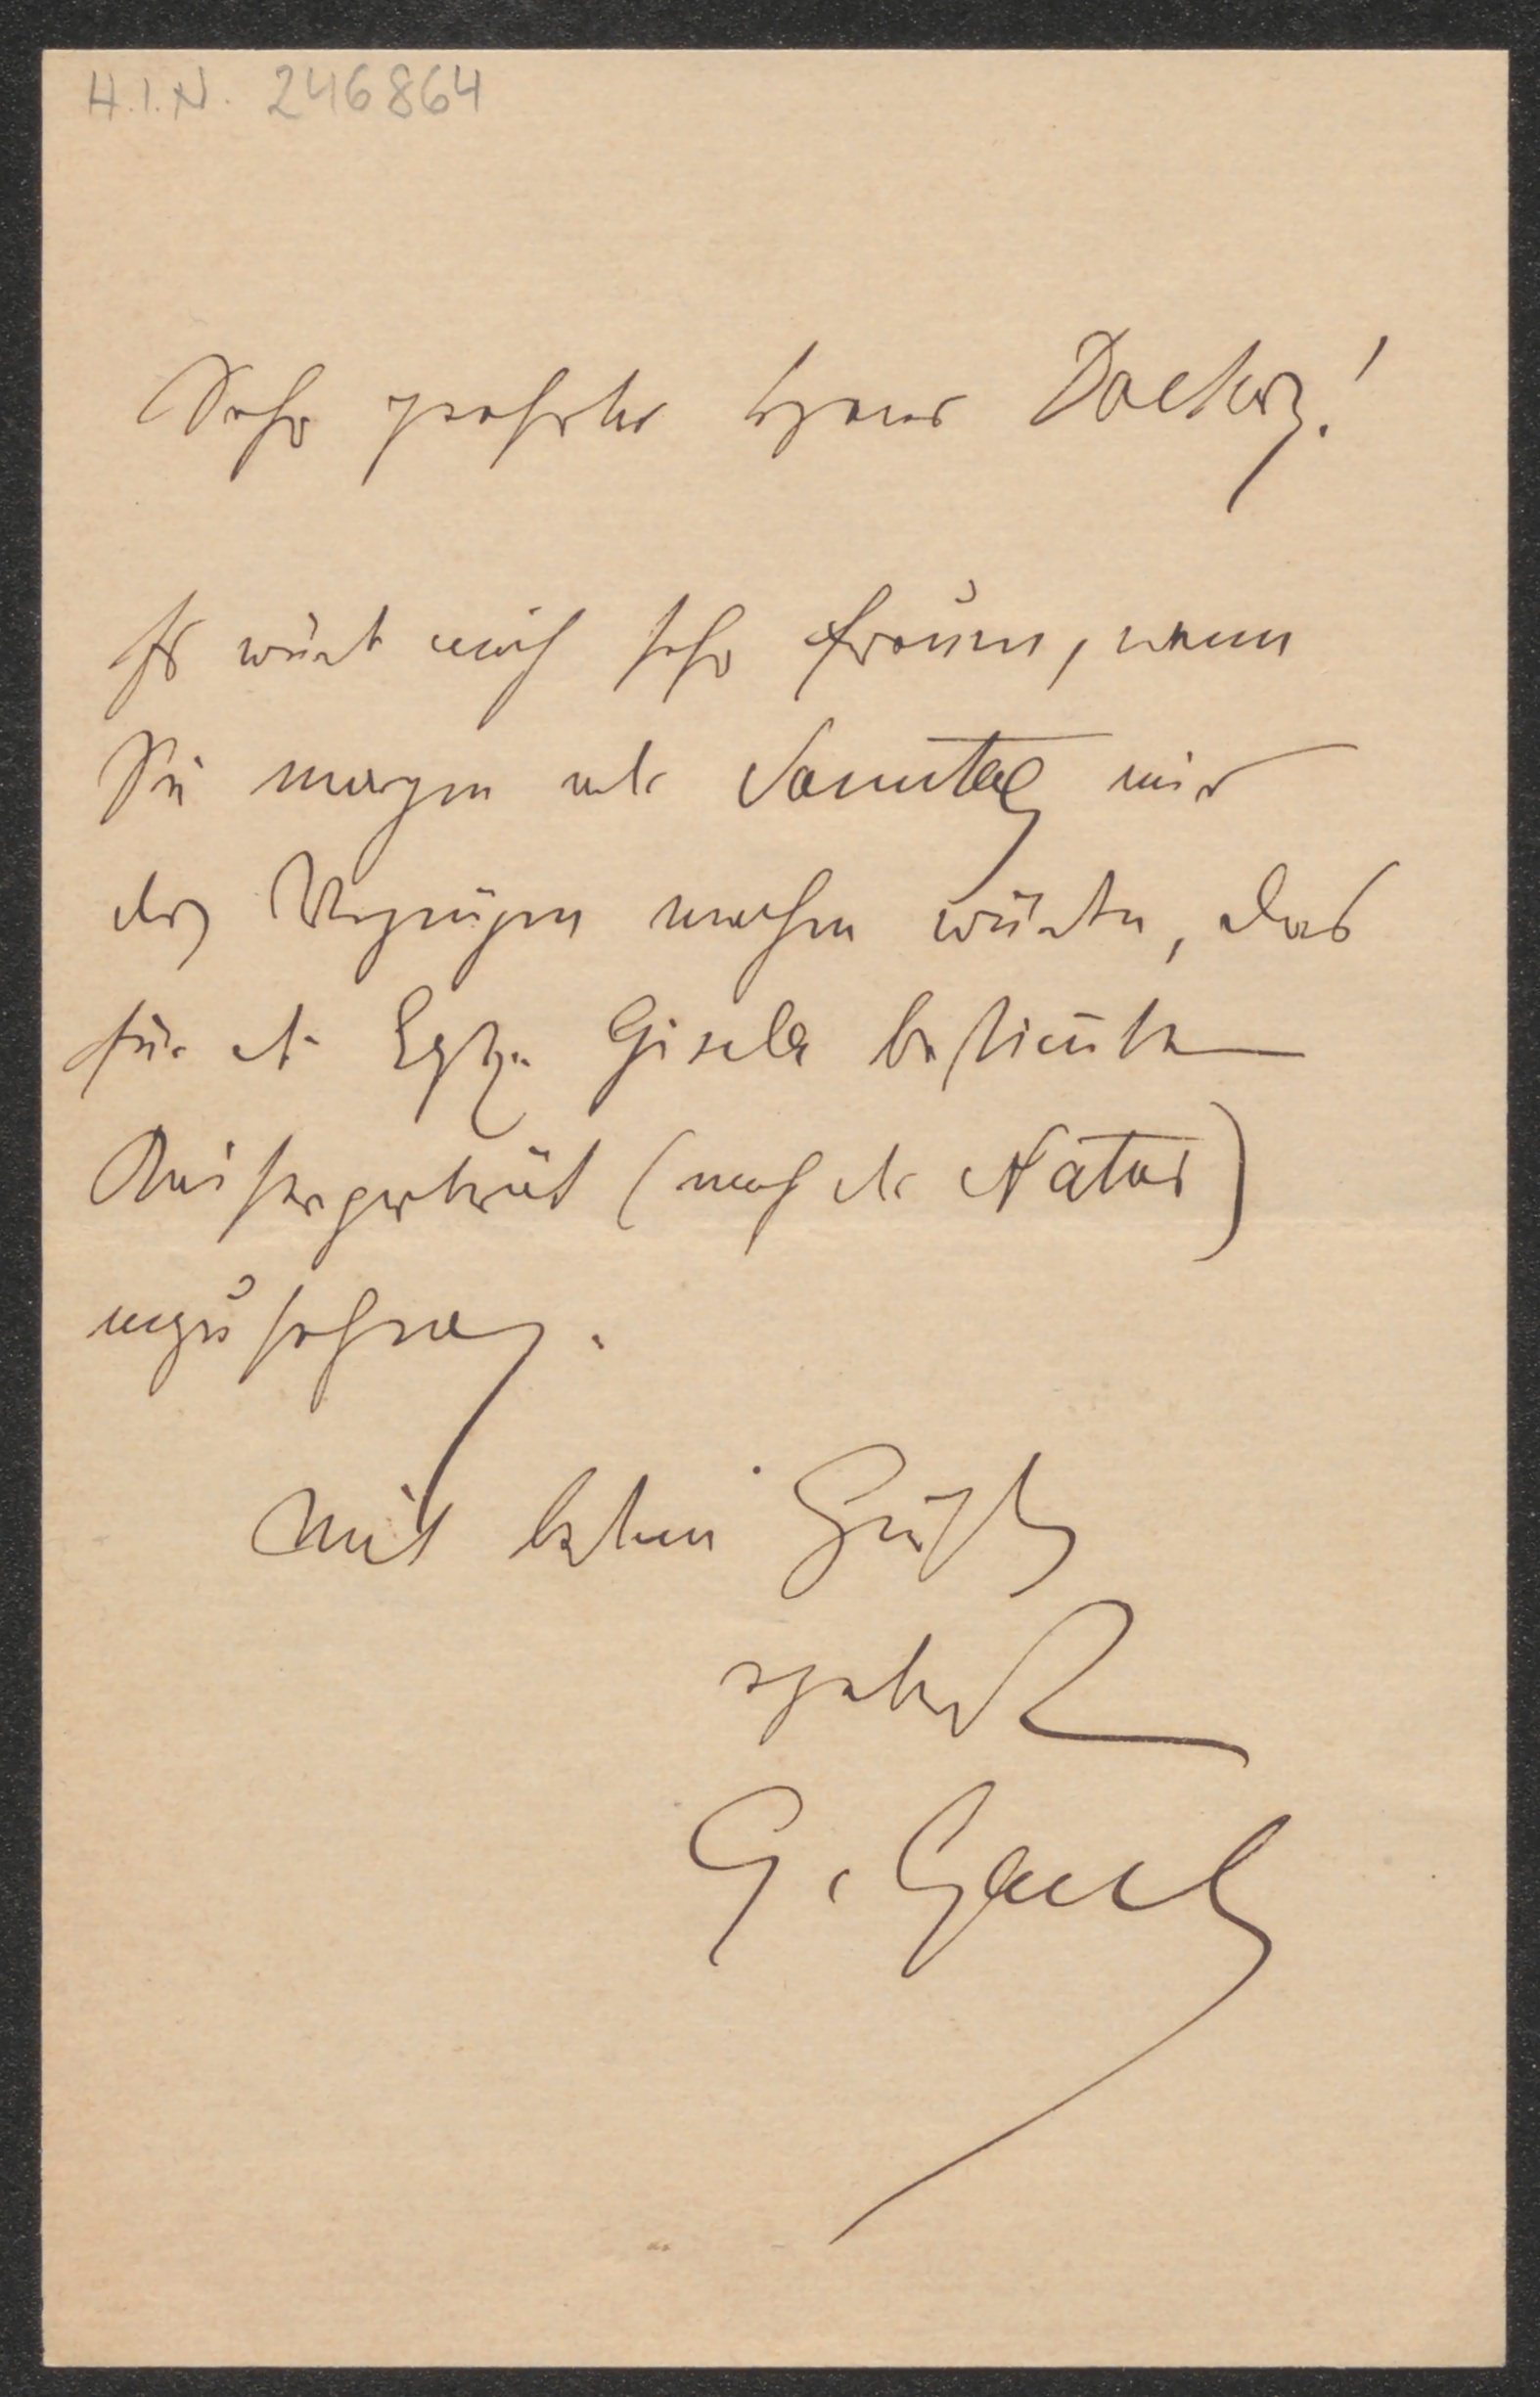 H.I.N. 246864
Sehr geehrter Herr Doctor!
Es würde mich sehr freuen, wenn
Sie morgen oder Sonntag mir
das Vergnügen machen würden, das
für die Erzh. Gisela bestimmte
Kaiserporträt (nach der Natur)
anzusehen.
Mit besten Grüßen
ergebenst
G. Gaul